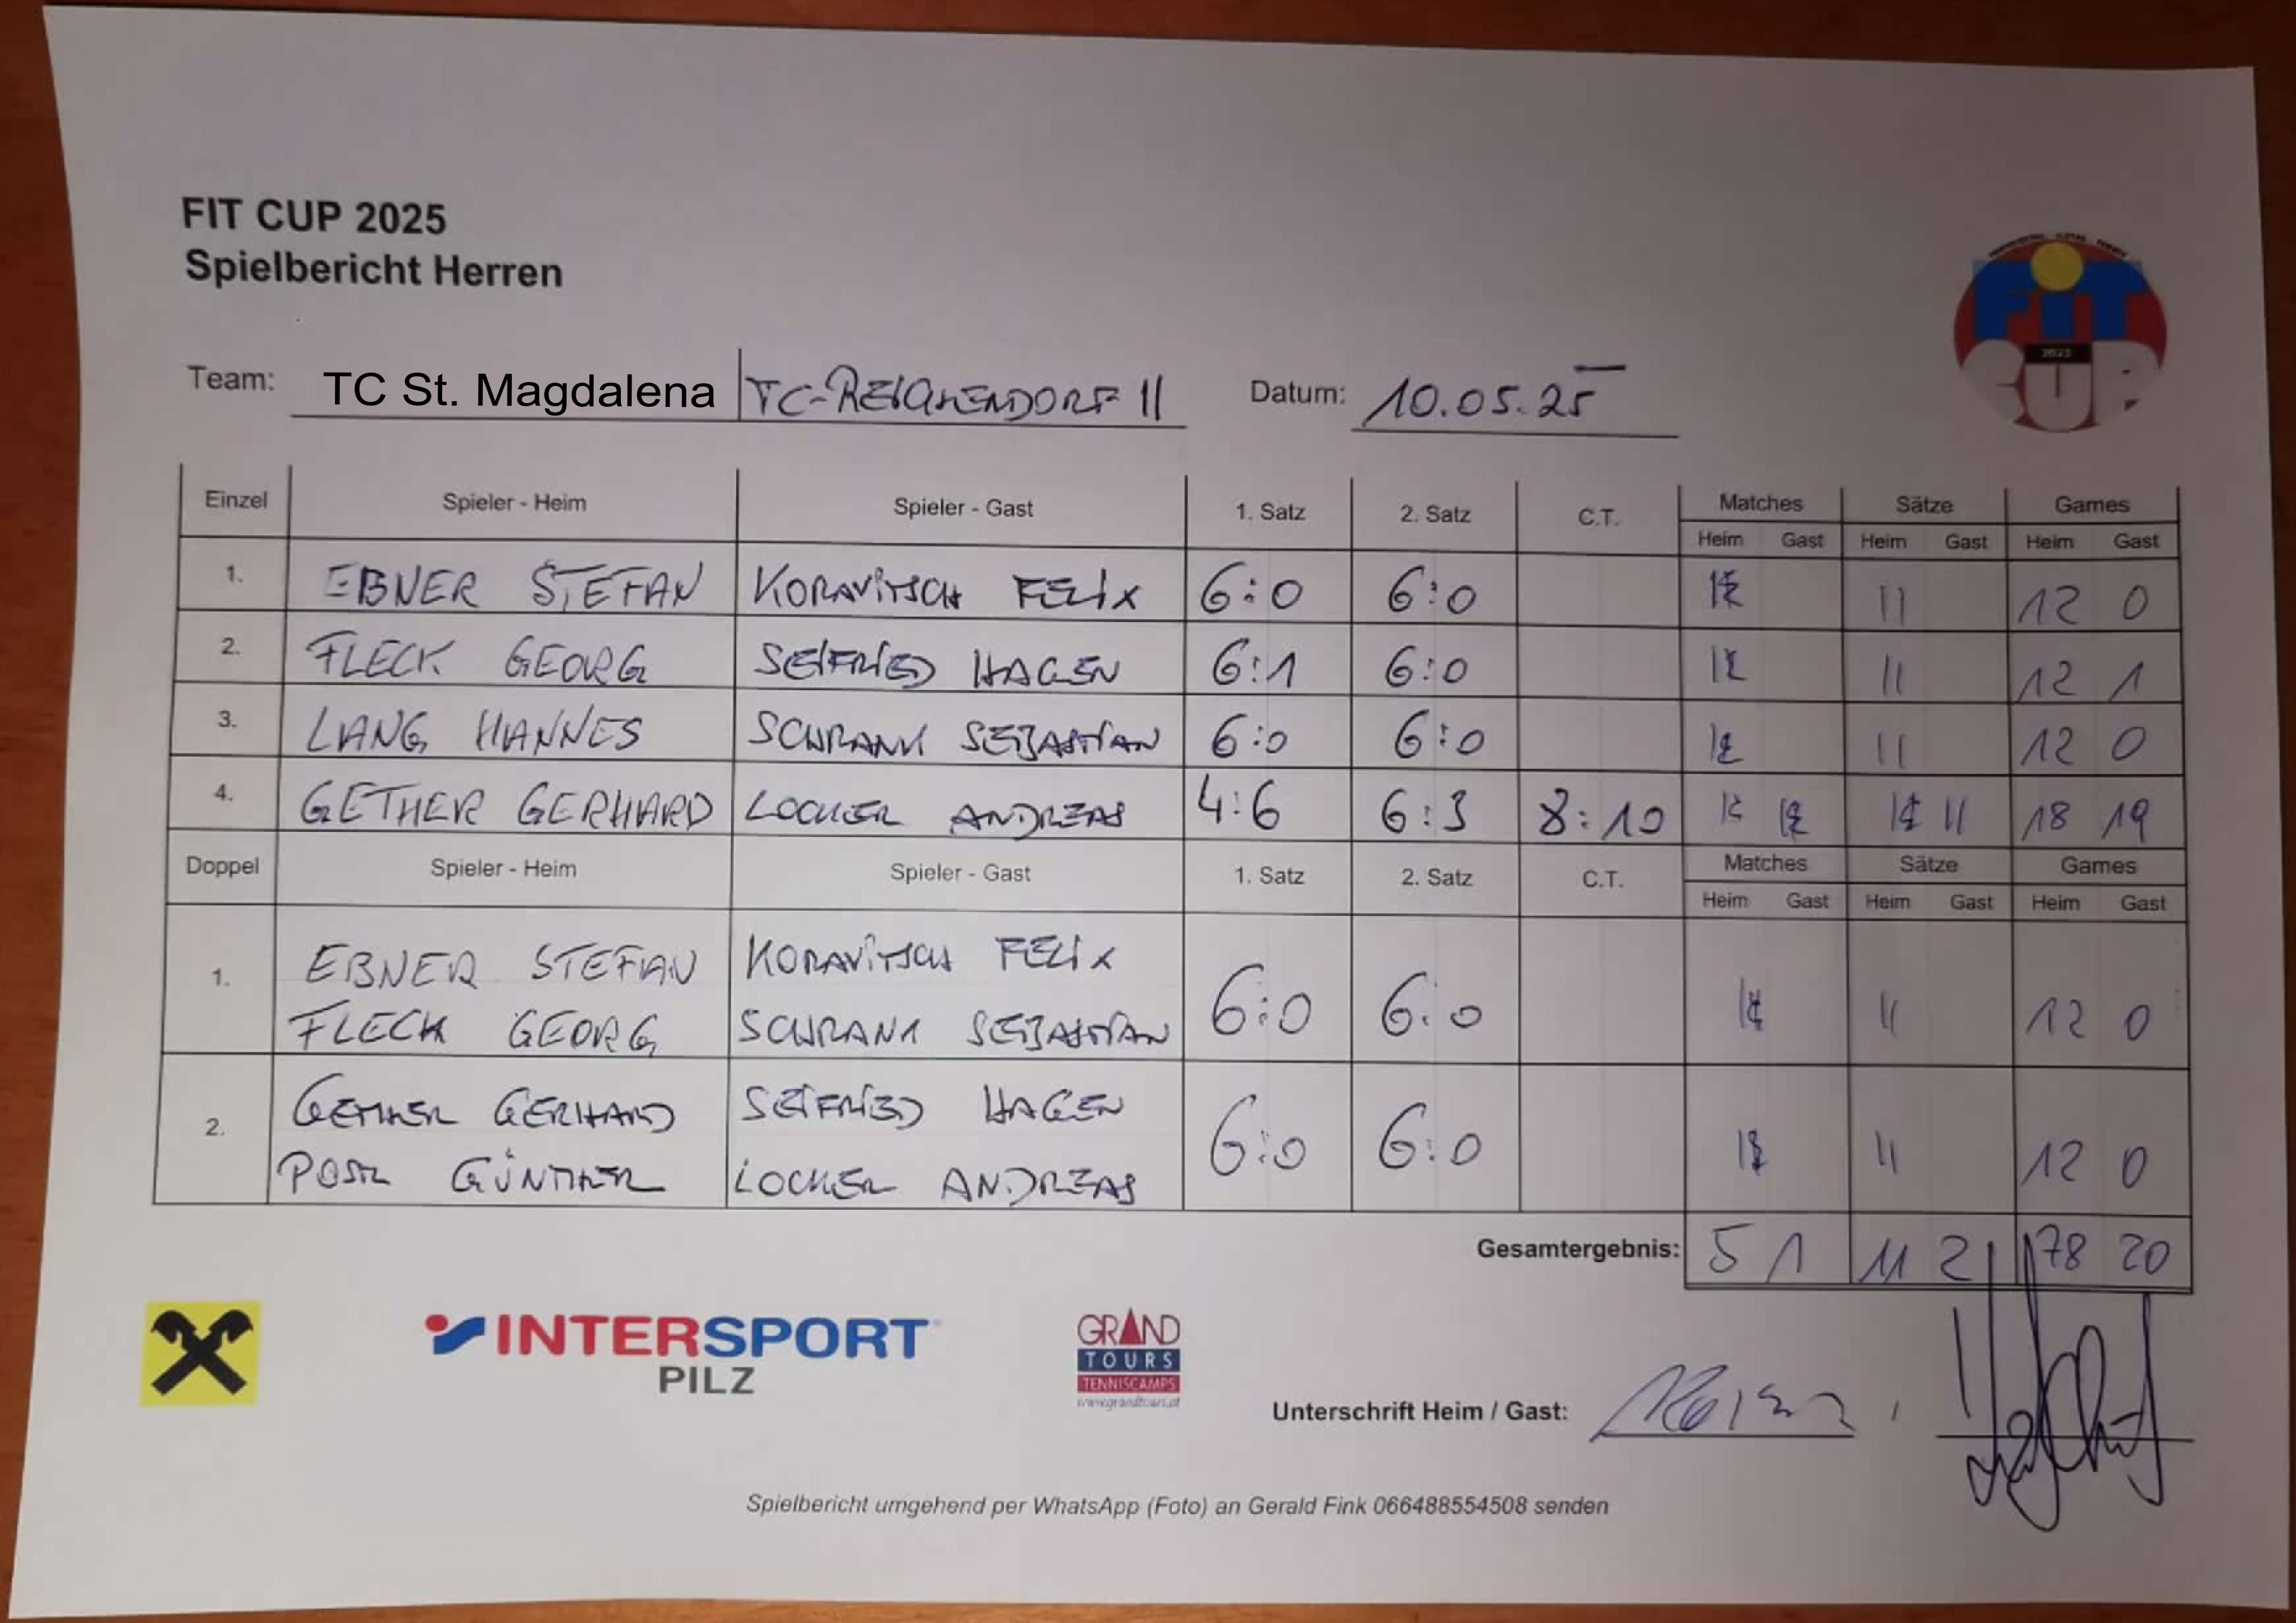 FIT CUP 2025
Spielbericht Herren
FiT
2023
Team: TC St. Magdalena TC-REICHENDORF II Datum: 10.05.25
Einzel Spieler - Heim Spieler - Gast 1. Satz 2. Satz C.T. Matches Sätze Games
Heim Gast Heim Gast Heim Gast
1. EBNER STEFAN KORAVITSCH FELIX 6:0 6:0 II 12 0
2. FLECK GEORG SEIFRIED HAGEN 6:1 6:0 II 12 1
3. LANG HANNES SCHRANK SEBASTIAN 6:0 6:0 II 12 0
4. GETHER GERHARD LOCKER ANDREAS 4:6 6:3 8:10 II 18 19
Doppel Spieler - Heim Spieler - Gast 1. Satz 2. Satz C.T. Matches Sätze Games
Heim Gast Heim Gast Heim Gast
1. EBNER STEFAN KORAVITSCH FELIX
FLECK GEORG SCHRANK SEBASTIAN 6:0 6:0 II 12 0
2. GETHER GERHARD SEIFRIED HAGEN
GÜNTHER LOCKER ANDREAS 6:0 6:0 II 12 0
Gesamtergebnis: 5 1 11 2 78 20
INTERSPORT
PILZ
GRAND
TOURS
TENNISCAMPS
www.grandtours.at
Unterschrift Heim / Gast:
Spielbericht umgehend per WhatsApp (Foto) an Gerald Fink 066488554508 senden